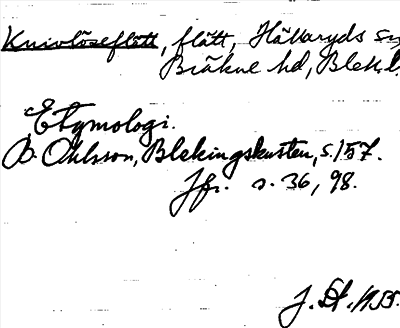 Knivlöseflätt, flätt, Hällaryds sn,
Bräkne hd, Blek.l.
Etymologi.
B. Ohlsson, Blekingskusten, s. 157.
Jfr. s. 36, 98.
J. St. 1955.